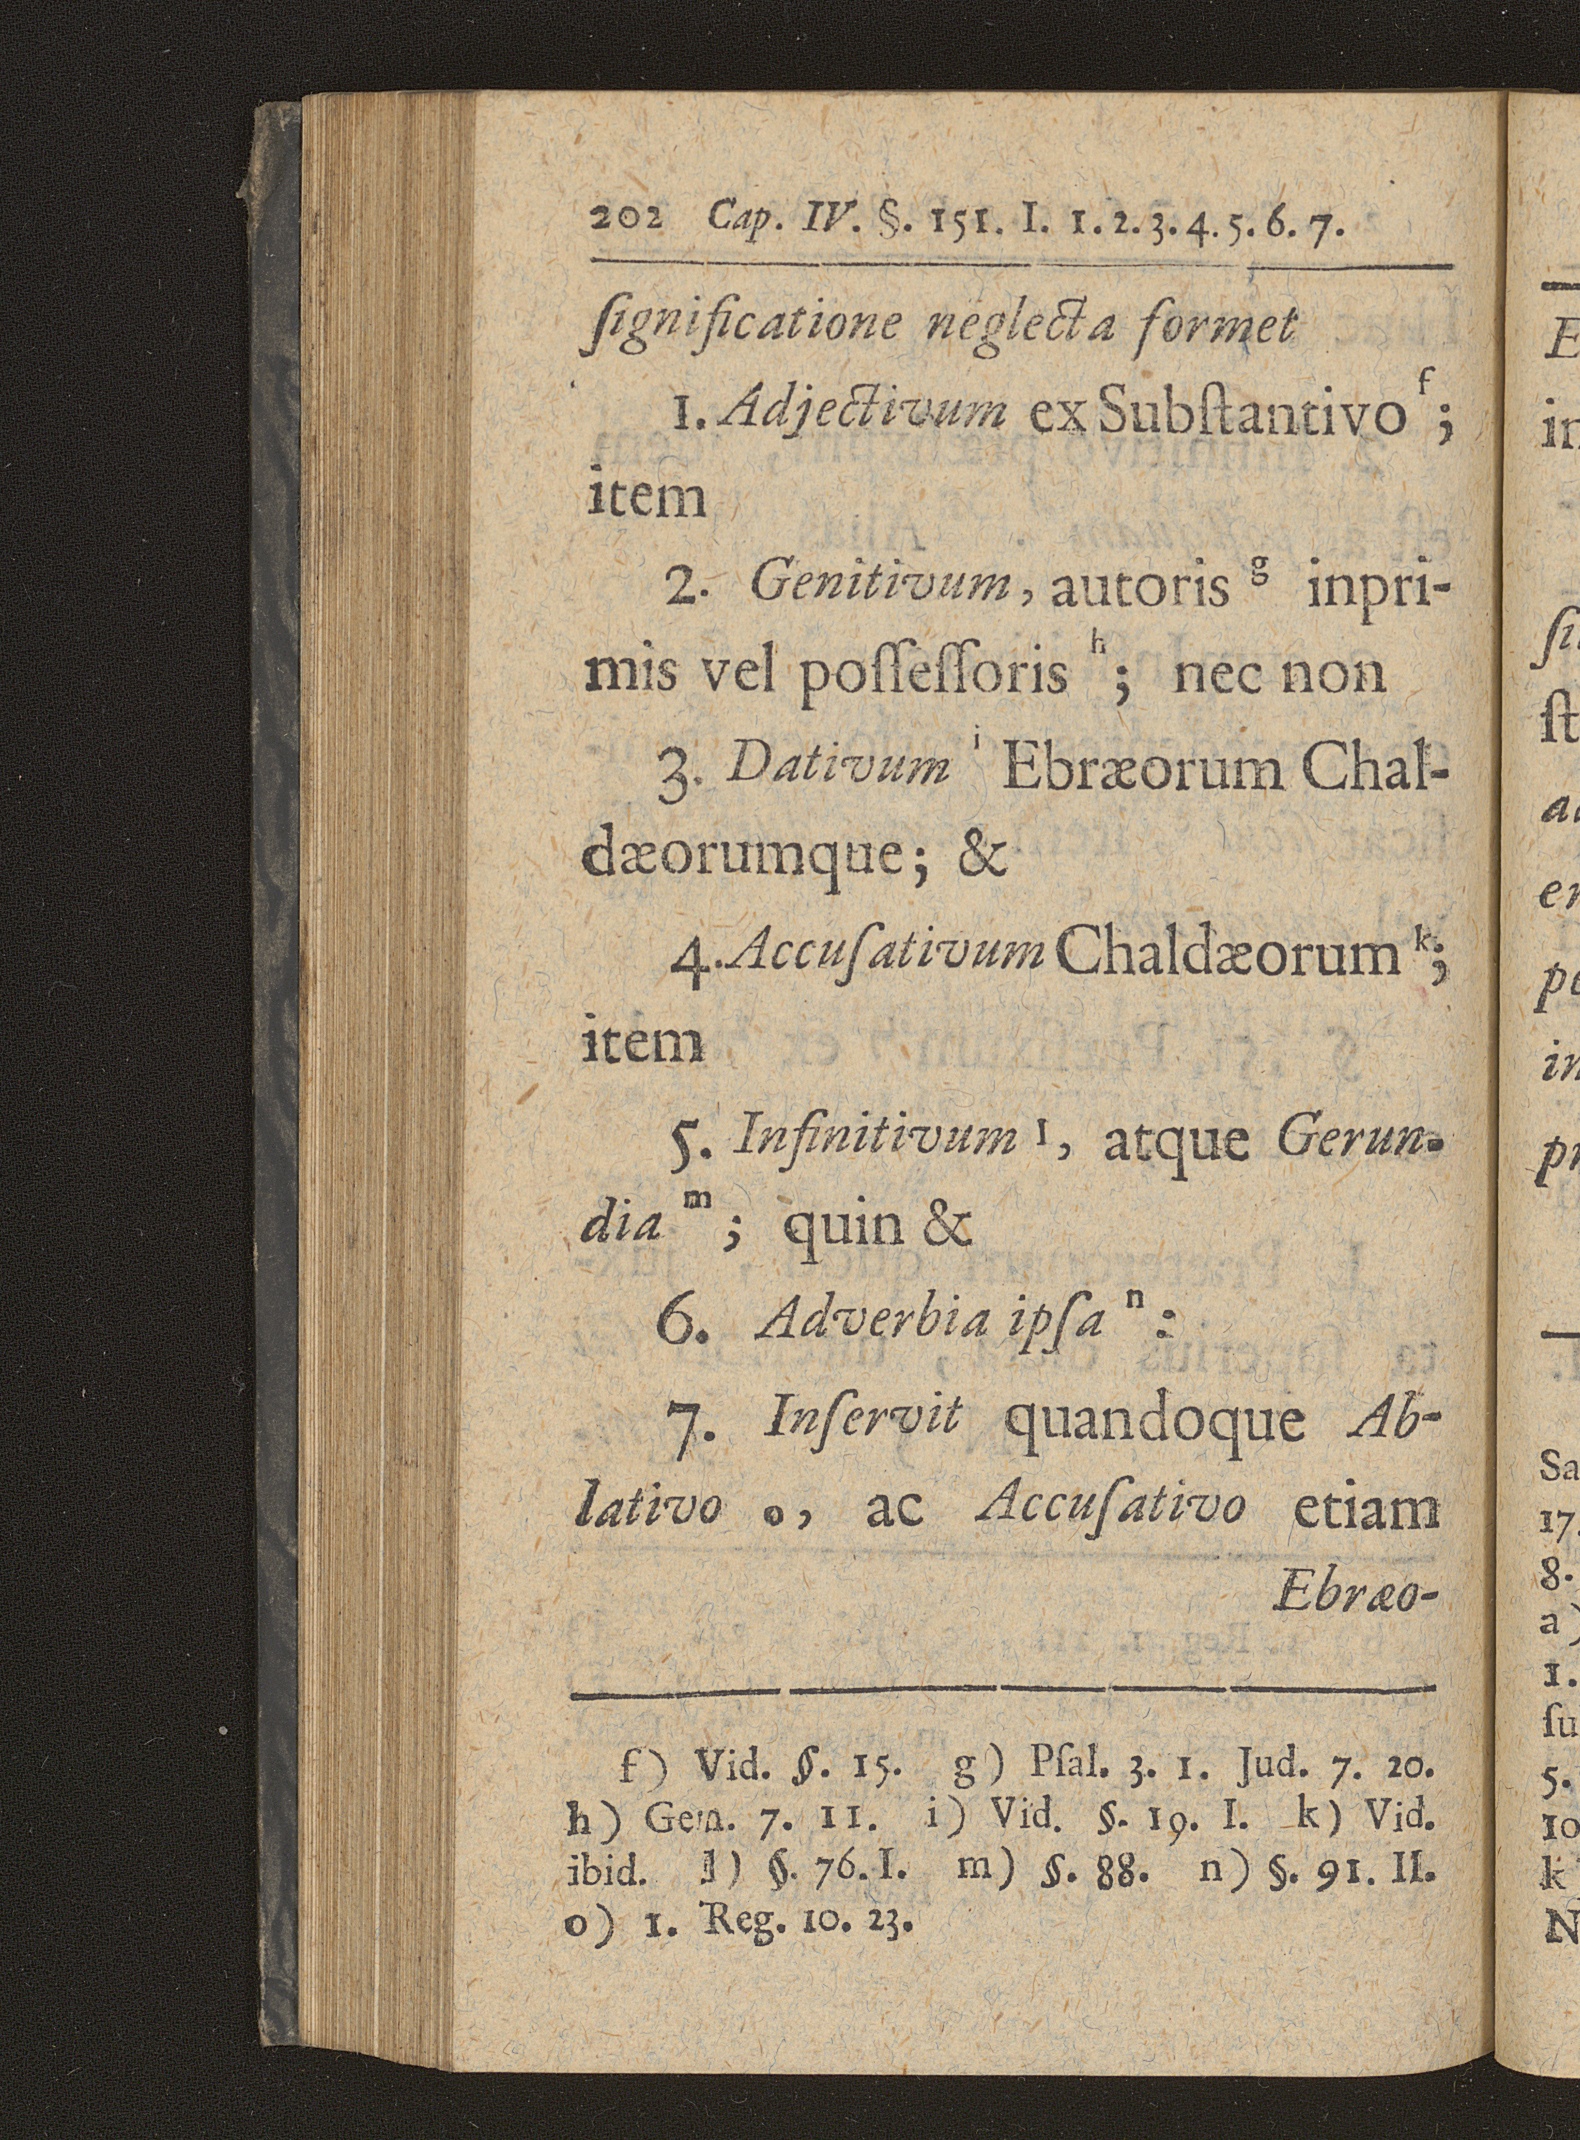 202 Cap. IV. §. 151. I. 1. 2. 3. 4. 5. 6. 7.
ſignificatione neglecta formet
1. Adjectivum ex Subſtantivo f;
item
2. Genitivum, autoris g inpri-
mis vel poſſeſſoris h; nec non
3. Dativum i Ebræorum Chal-
dæorumque; &
4. Accuſativum Chaldæorum k;
item
5. Infinitivum l, atque Gerun-
dia m; quin &
6. Adverbia ipſa n:
7. Inſervit quandoque Ab-
lativo o, ac Accuſativo etiam
Ebræo-
f) Vid. §. 15. g) Pſal. 3. 1. Jud. 7. 20.
h) Gen. 7. 11. i) Vid. §. 19. I. k) Vid.
ibid. l) §. 76. I. m) §. 88. n) §. 91. II.
o) 1. Reg. 10. 23.